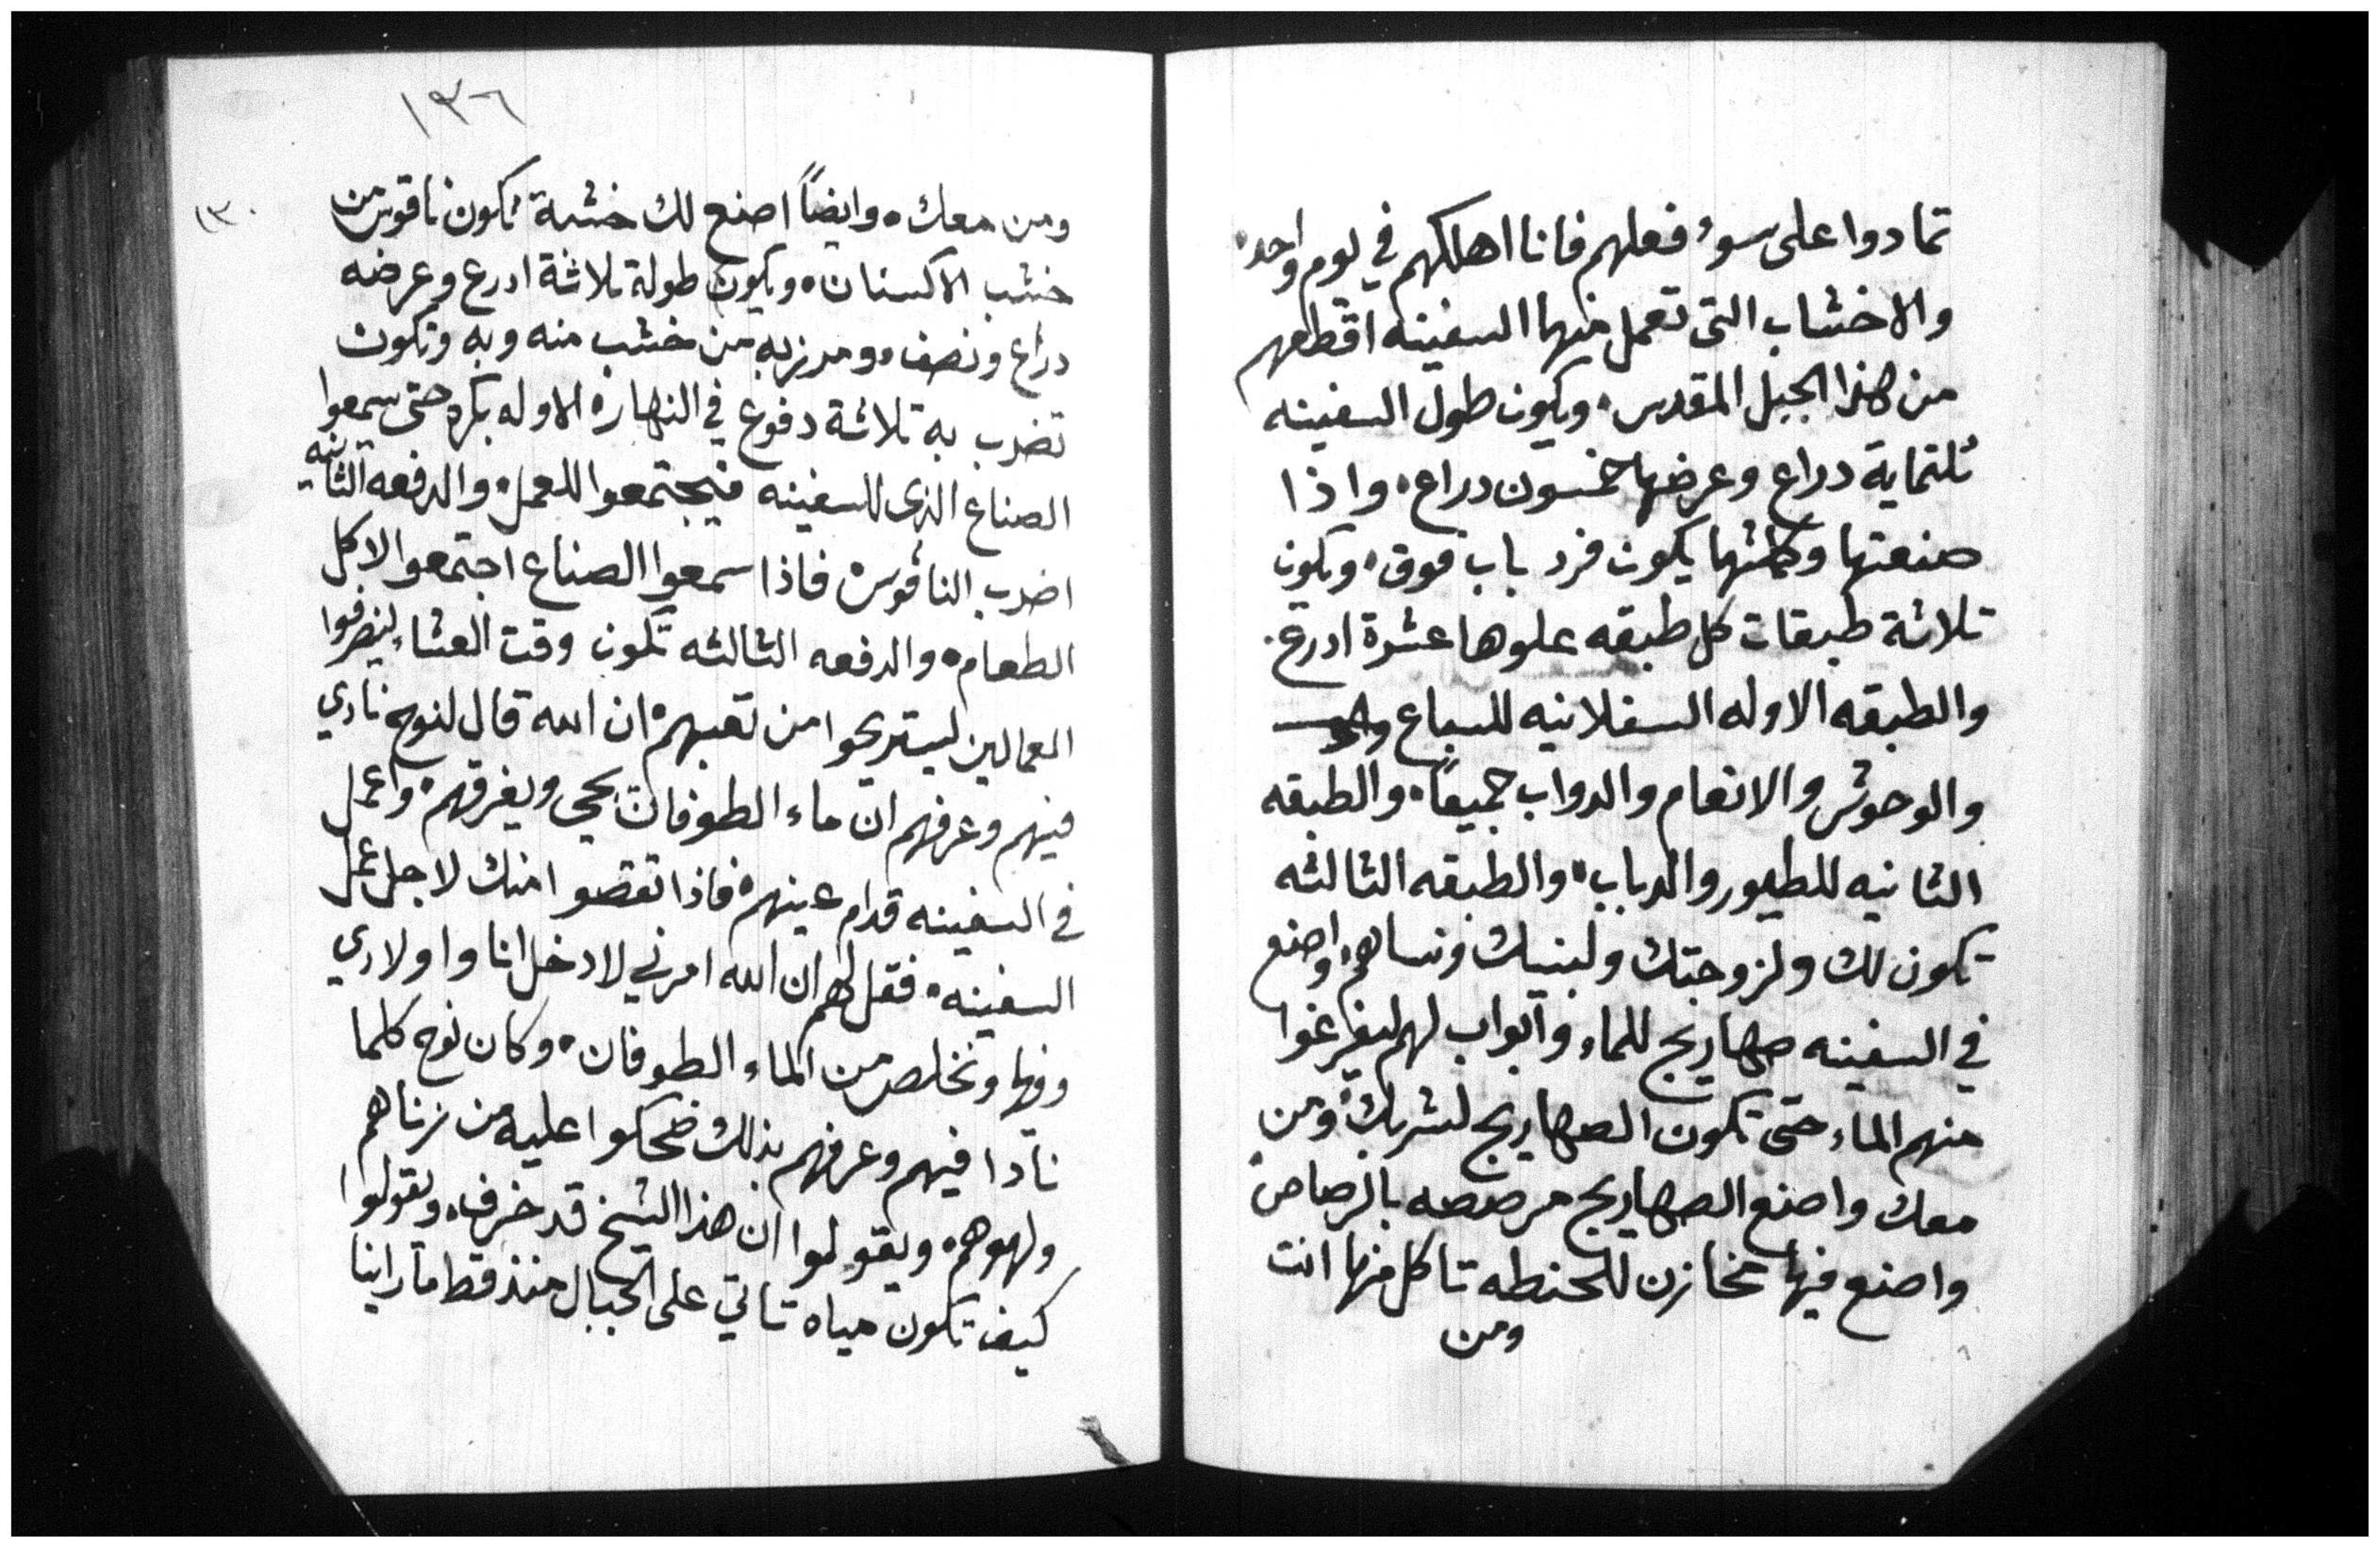 تمادوا على سوء فعلهم فانا اهلكهم في يوم واحد،
والاخشاب التى تعمل منها السفينه اقطعهم
من هذا الجبل المقدس، ويكون طول السفينه
تلتماية دراع وعرضها خمسون دراع، واذا
صنعتها وكملتها يكون فرد باب فوق، وتكون
تلاتة طبقات كل طبقه علوها عشرة ادرع.
والطبقه الاوله السفلانيه للسباع
والوحوش والانعام والدواب جميعاً، والطبقه
الثانيه للطيور والدباب، والطبقه الثالثه
تكون لك ولزوجتك ولبنيك ونساهم، واصنع
في السفينه صهاريج للماء وابواب لهم ليفرغوا
منهم الماء حتى تكون الصهاريج لشربك ومن
معك واصنع الصهاريج مرصصه بالرصاص
واصنع فيها مخازن للحنطه تاكل منها انت
ومن
١٣٦
١٣٠
ومن معك، وايضاً اصنع لك خشبة تكون ناقوس من
خشب الاكسنان، ويكون طولة تلاثة ادرع وعرضه
دراع ونصف، ومدزبه من خشب منه وبه وتكون
تضرب به تلاثة دفوع في النهار، الاوله بكره حتى يسمعوا
الصناع الذى للسفينه فيجتمعوا للعمل، والدفعه الثانيه
اضرب الناقوس، فاذا سمعوا الصناع اجتمعوا لاكل
الطعام، والدفعه الثالثه تكون وقت العشاء لينصرفوا
العمالين ليستريحوا من تعبهم، ان الله قال لنوح نادي
فيهم وعرفهم ان ماء الطوفان يجى ويغرقهم، واعمل
في السفينه قدام عينهم، فاذا تقصوا منك لاجل عمل
السفينه، فقل لهم ان الله امرني لادخل انا واولادي
وفيها ونخلص من الماء الطوفان، وكان نوح كلما
نادا فيهم وعرفهم بذلك ضحكوا عليه من زناهم
ولهوهم، ويقولوا ان هذا الشيخ قد خرف، ويقولوا
كيف تكون مياه تاتي على الجبال منذ قط ما راينا